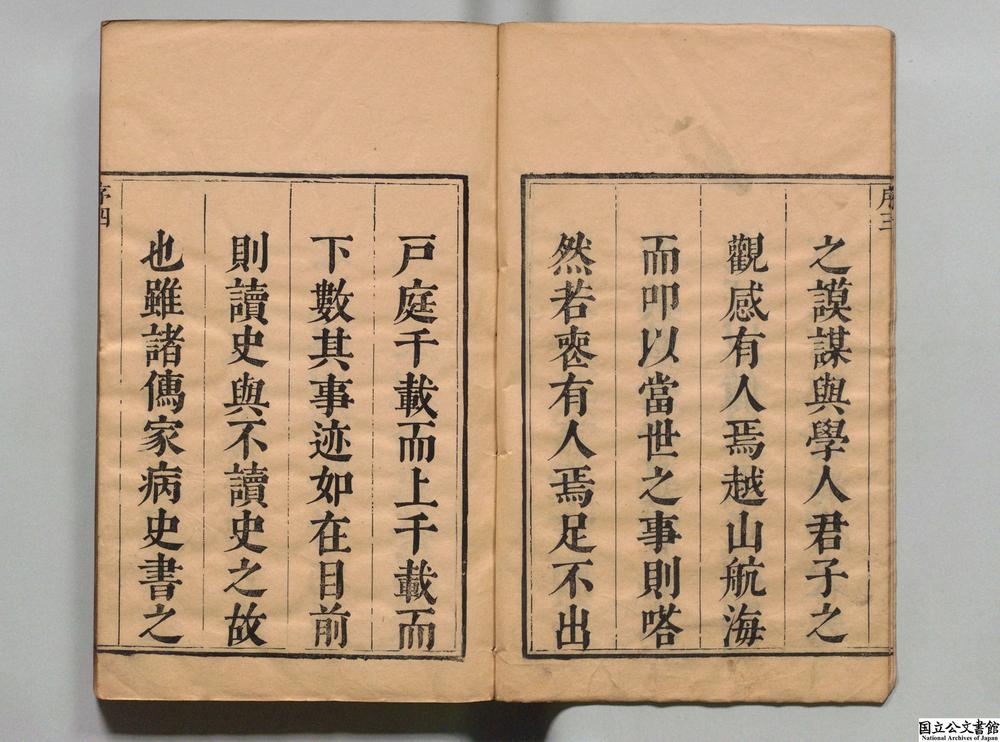 序三
之謨謀與學人君子之
觀感有人焉越山航海
而叩以當世之事則嗒
然若䘮有人焉足不出
戸庭千載而上千載而
下數其事迹如在目前
則讀史與不讀史之故
也雖諸傳家病史書之
序四
国立公文書館
National Archives of Japan